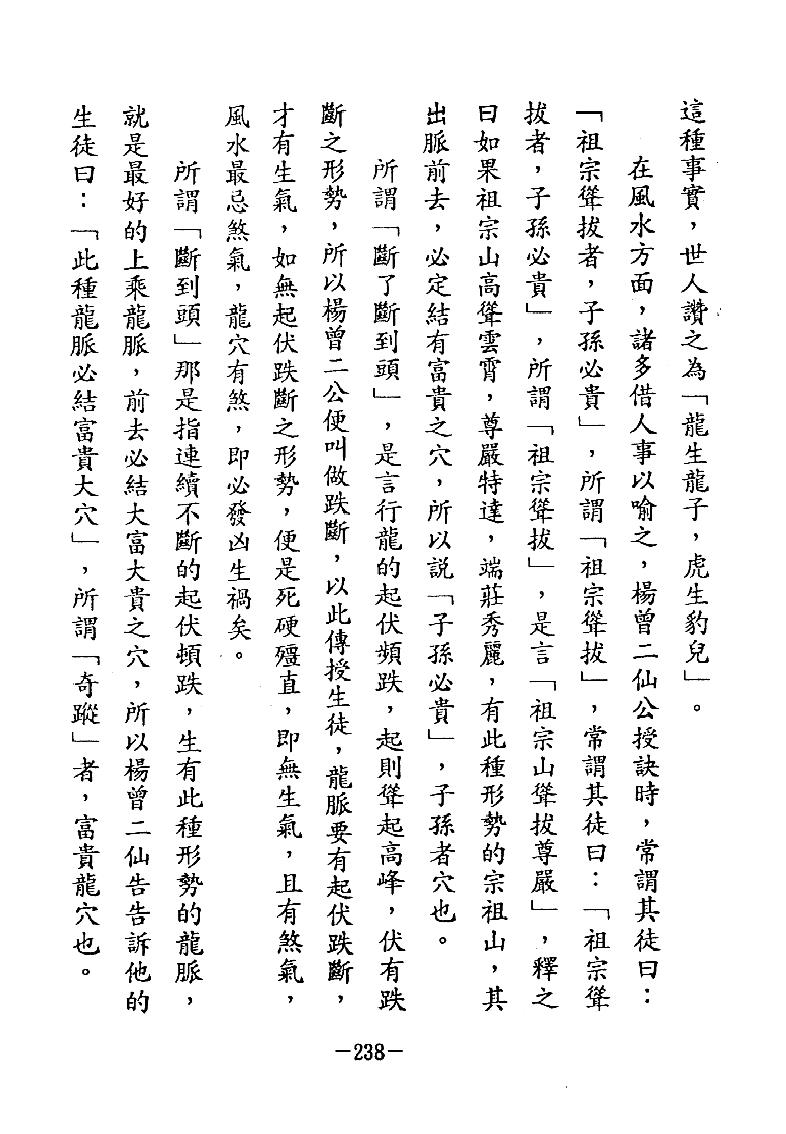 這種事實，世人讚之為「龍生龍子，虎生豹兒」。
在風水方面，諸多借人事以喻之，楊曾二仙公授訣時，常謂其徒曰：
「祖宗聳拔者，子孫必貴」，所謂「祖宗聳拔」，常謂其徒曰：「祖宗聳
拔者，子孫必貴」，所謂「祖宗聳拔」，是言「祖宗山聳拔尊嚴」，釋之
曰如果祖宗山高聳雲霄，尊嚴特達，端莊秀麗，有此種形勢的宗祖山，其
出脈前去，必定結有富貴之穴，所以説「子孫必貴」，子孫者穴也。
所謂「斷了斷到頭」，是言行龍的起伏頻跌，起則聳起高峰，伏有跌
斷之形勢，所以楊曾二公便叫做跌斷，以此傳授生徒，龍脈要有起伏跌斷，
才有生氣，如無起伏跌斷之形勢，便是死硬殭直，即無生氣，且有煞氣，
風水最忌煞氣，龍穴有煞，即必發凶生禍矣。
所謂「斷到頭」那是指連續不斷的起伏頓跌，生有此種形勢的龍脈，
就是最好的上乘龍脈，前去必結大富大貴之穴，所以楊曾二仙告告訴他的
生徒曰：「此種龍脈必結富貴大穴」，所謂「奇蹤」者，富貴龍穴也。
—238—